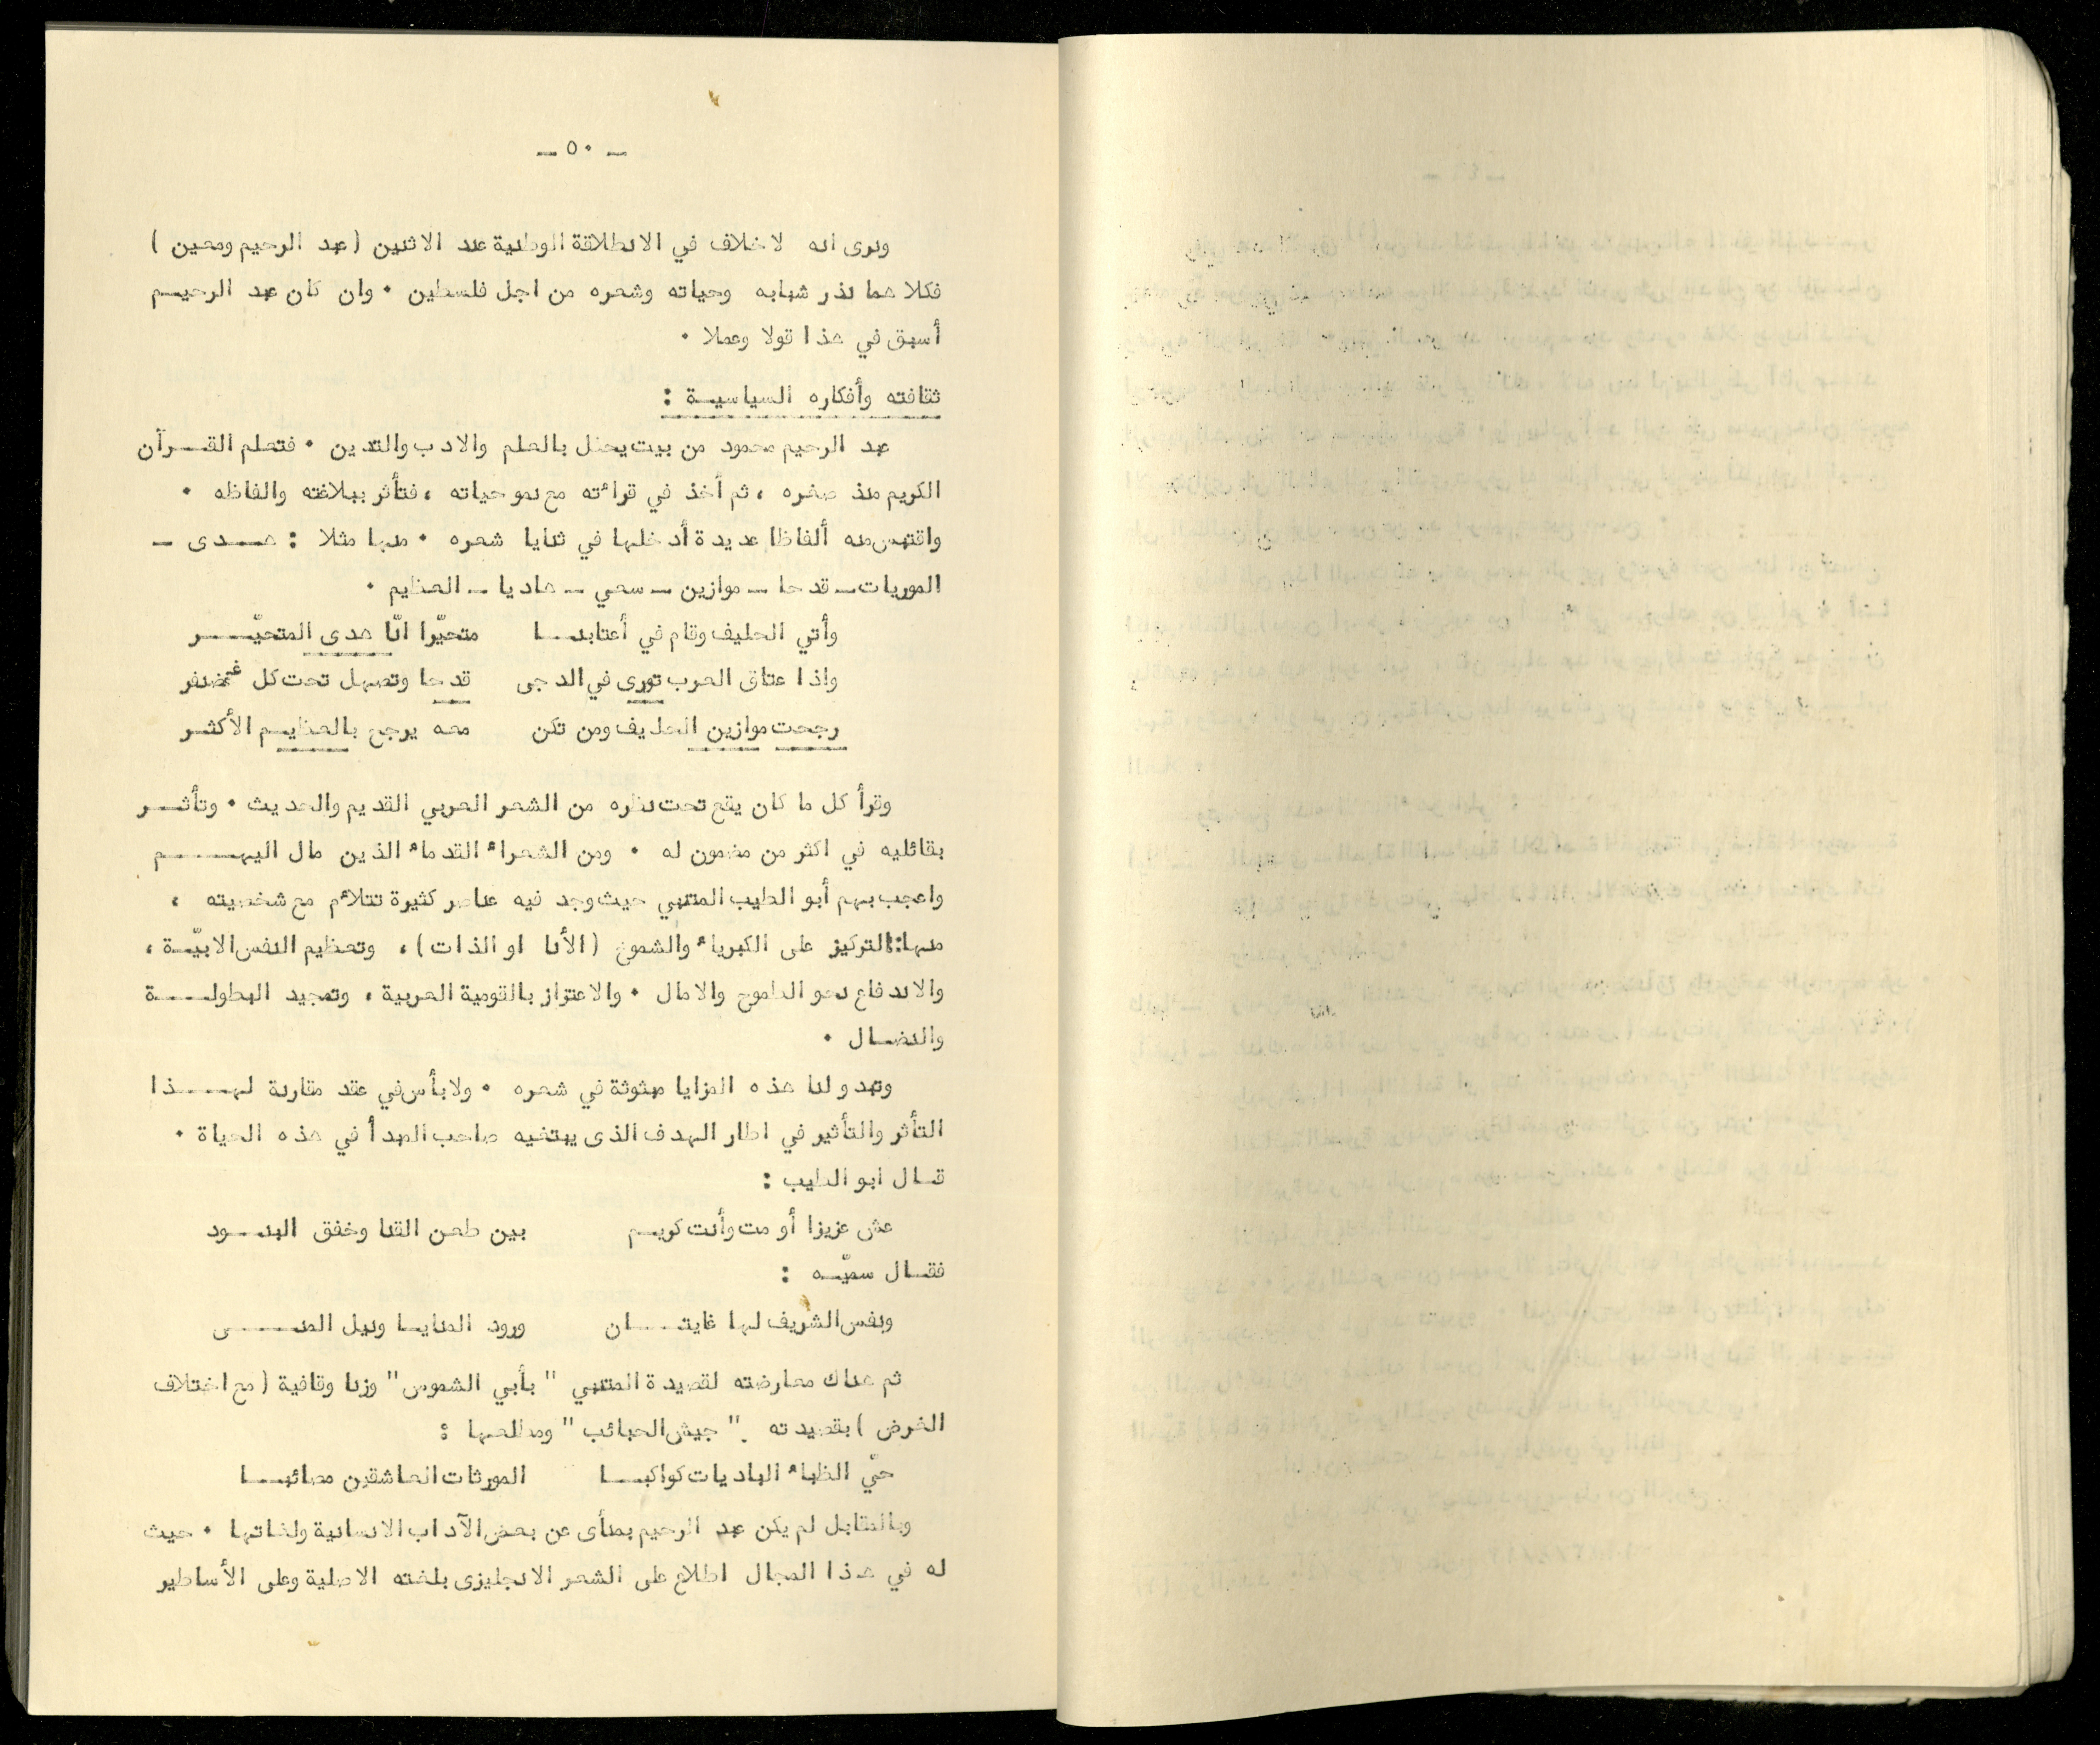 ـ ٥٠ ـ
ونرى انه لا خلاف في الانطلاقة الوطنية عند الاثنين (عبد الرحيم ومعين)
فكلا هما نذر شبابه وحياته وشعره من اجل فلسطين ٠ وان كان عبد الرحيـم
أسبق في هذا قولا وعملا ٠
ثقافته وأفكاره السياسيـة :
عبد الرحيم محمود من بيت يحفل بالعلم والادب والتدين ٠ فتعلم القــرآن
الكريم منذ صغره ، ثم أخذ في قرائته مع نمو حياته ، فتأثر ببلاغته والفاظه ٠
واقتبس منه ألفاظا عديدة أدخلها في ثنايا شعره ٠ منها مثلا : هــدى ـ
الموريات ـ قدحا ـ موازين ـ سعي ـ هاديا ـ العظيم ٠
وأتي الحليف وقام في أعتابنــا متحيّرا انّا هدى المتحيّــر
واذا عتاق العرب تورى في الدجى قدحا وتصهل تحت كل غضنفر
رجحت موازين الحليف ومن تكن معه يرجح بالعظيـم الأكثـر
وقرأ كل ما كان يقع تحت نظره من الشعر العربي القديم والحديث ٠ وتأثــر
بقائليه في اكثر من مضمون له ٠ ومن الشعراء القدماء الذين مال اليهــم
واعجب بهم أبو الطيب المتنبي حيث وجد فيه عناصر كثيرة تتلاءم مع شخصيته ،
منها: التركيز على الكبرياء والشموخ (الأنا او الذات) ، وتعظيم النفس الابيّـة ،
والاندفاع نحو الطموح والامال ٠ والاعتزاز بالقومية العربية ، وتمجيد البطولــة
والنضـال ٠
وتبدو لنا هذه المزايا مبثوثة في شعره ٠ ولا بأس في عقد مقارنة لهــذا
التأثر والتأثير في اطار الهدف الذى يبتغيه صاحب المبدأ في هذه الحياة ٠
قـال ابو الطيب :
عش عزيزا أو مت وأنت كريـم بين طعن القنا وخفق البنــود
فقـال سميّـه :
ونفس الشريف لها غايتــان ورود المنايـا ونيل المنــى
ثم هناك معارضته لقصيدة المتنبي " بأبي الشموس" وزنا وقافية (مع اختلاف
الغرض) بقصيدته " جيش الحبائب" ومطلعها :
حيّ الظباء الباديات كواكبـا المورثات العاشقين مصائبـا
وبالمقابل لم يكن عبد الرحيم بمنأى عن بعض الآداب الانسانية ولغاتها ٠ حيث
له في هذا المجال اطلاع على الشعر الانجليزى بلغته الاصلية وعلى الأساطير